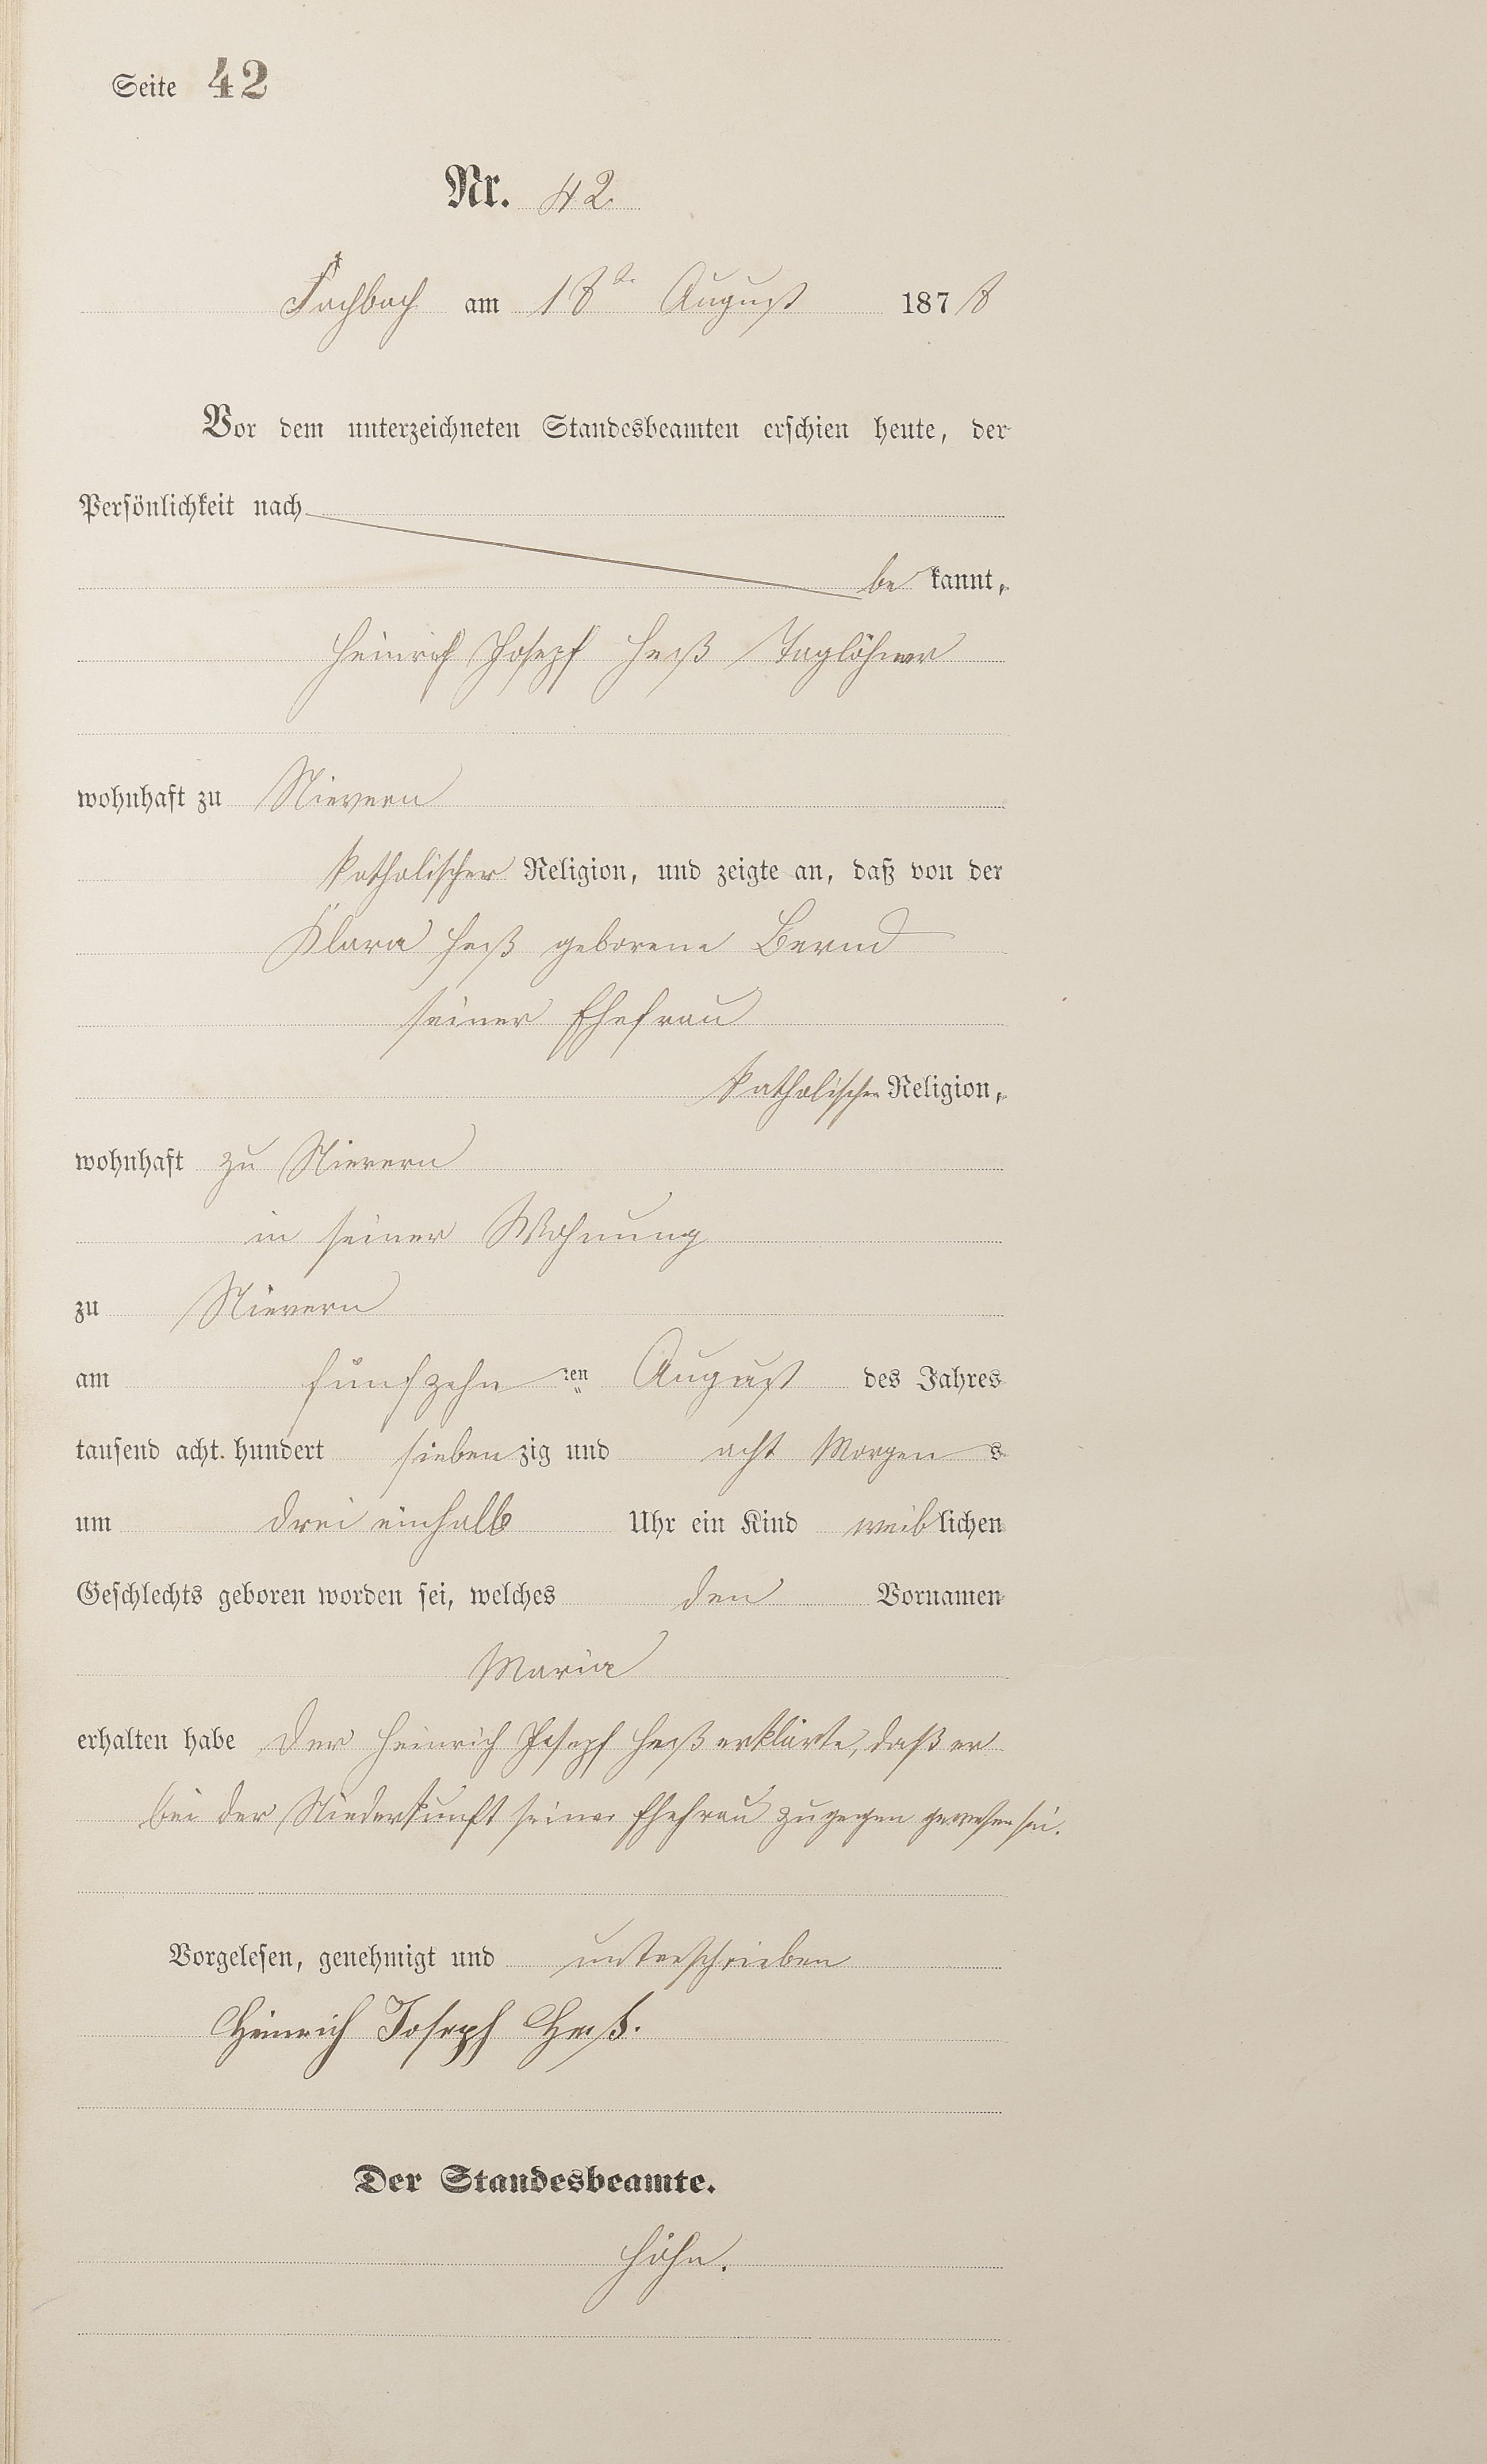 Seite 42
Nr. 42.
Fachbach am 18ten August 1878
Vor dem unterzeichneten Standesbeamten erschien heute, der
Persönlichkeit nach
be kannt,
Heinrich Joseph Heß Taglöhner
wohnhaft zu Nievern
katholischer Religion, und zeigte an, daß von der
Klara Heß geborene Bernd
seiner Ehefrau
katholischer Religion,
wohnhaft zu Nievern
in seiner Wohnung
zu Nievern
am fünfzehn ten August des Jahres
tausend acht hundert sieben zig und acht Morgen s
um drei einhalb Uhr ein Kind weiblichen
Geschlechts geboren worden sei, welches den Vornamen
Maria
erhalten habe Der Heinrich Joseph Heß erklärte, daß er
bei der Niederkunft seiner Ehefrau zugegen gewesen sei.
Vorgelesen, genehmigt und unterschrieben
Heinrich Joseph Heß.
Der Standesbeamte.
Höhn.